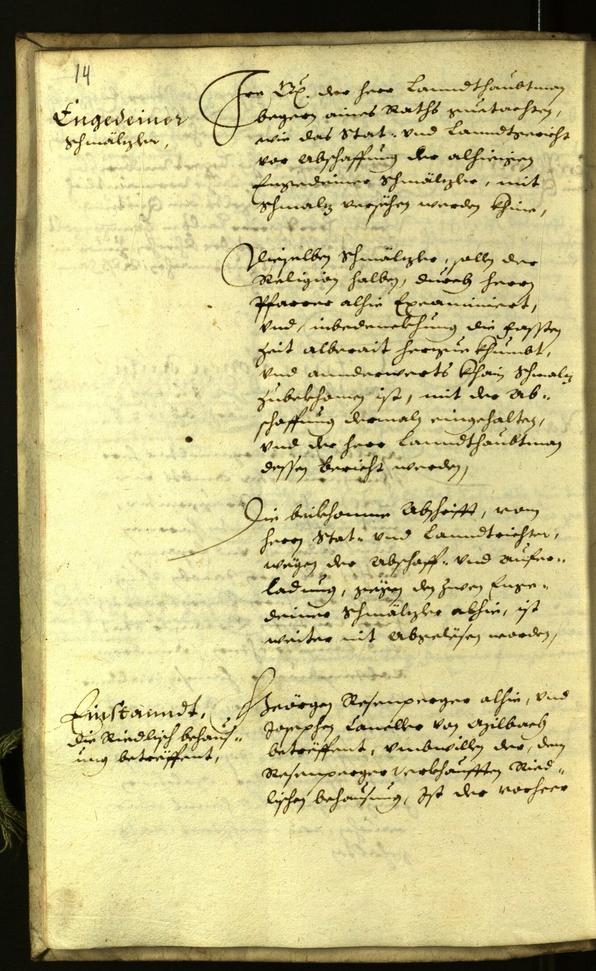 14
Engedeiner
Schmälzler,
Ir Gn. der herr Lanndtshaubtman
begern aines Raths guetachten,
wie das Stat- und Lanndtgericht
vor Abschaffung der alhieigen
Engedeiner Schmälzler, mit
Schmalz versehen werden khine,
Dieselben Schmälzler, sollen der
Religion halben, durch herrn
Pfarrer alhie Exeaminiert,
und inbedenckhung die fassten
zeit alberait herzue khumbt,
und annderwerts khain Schmalz
zubekhomen ist, mit der Ab-
schaffung dermaln eingehalten,
und der herr Lanndtshaubtman
dessen bericht werden,
Die bekhomne Abschrifft, vom
herrn Stat- und Lanndtrichter,
wegen der Abschaff- und aufer-
ladung, gegen den zween Enge-
deiner Schmälzler alhie, ist
weiter nit abgelesen worden,
Einstanndt,
die Riedlisch behaus-
ung betreffent,
Geörgen Resenperger alhie, und
Josephen Laneller von
betreffent, umbwillen der, dem
Resenperger verkhaufften Ried-
lischen behausung, Ist der vorherr